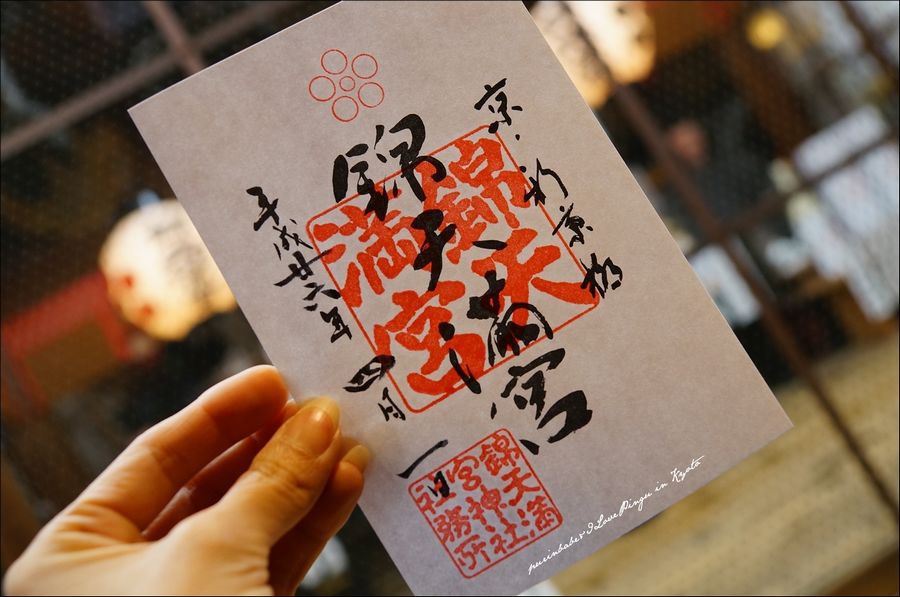 京・新京極
錦天満宮
平成廿六年
四月一日
錦天
満宮
錦天満
宮神社
社務所
purinbabe & I Love Pingu in Kyoto